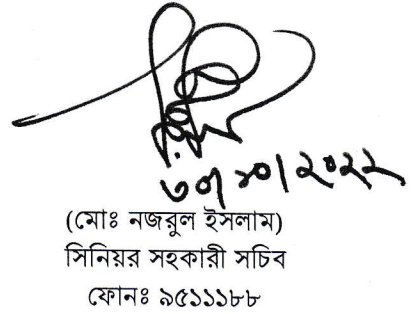 ৩০/১০/২০২২
(মোঃ নজরুল ইসলাম)
সিনিয়র সহকারী সচিব
ফোনঃ ৯৫১১১৮৮